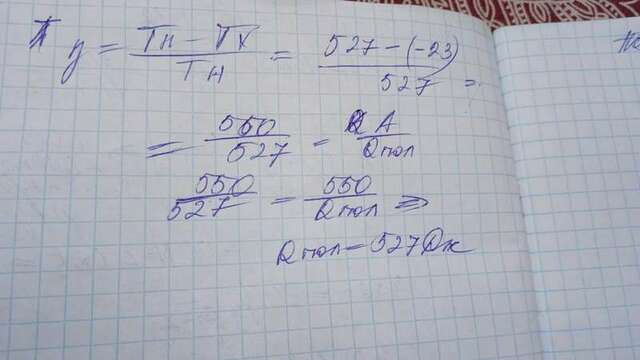 η = Тн - Тх / Тн = 527 - (-23) / 527 =
= 550 / 527 = А / Qпол
550 / 527 = 550 / Qпол ⇒
Qпол = 527 Дж